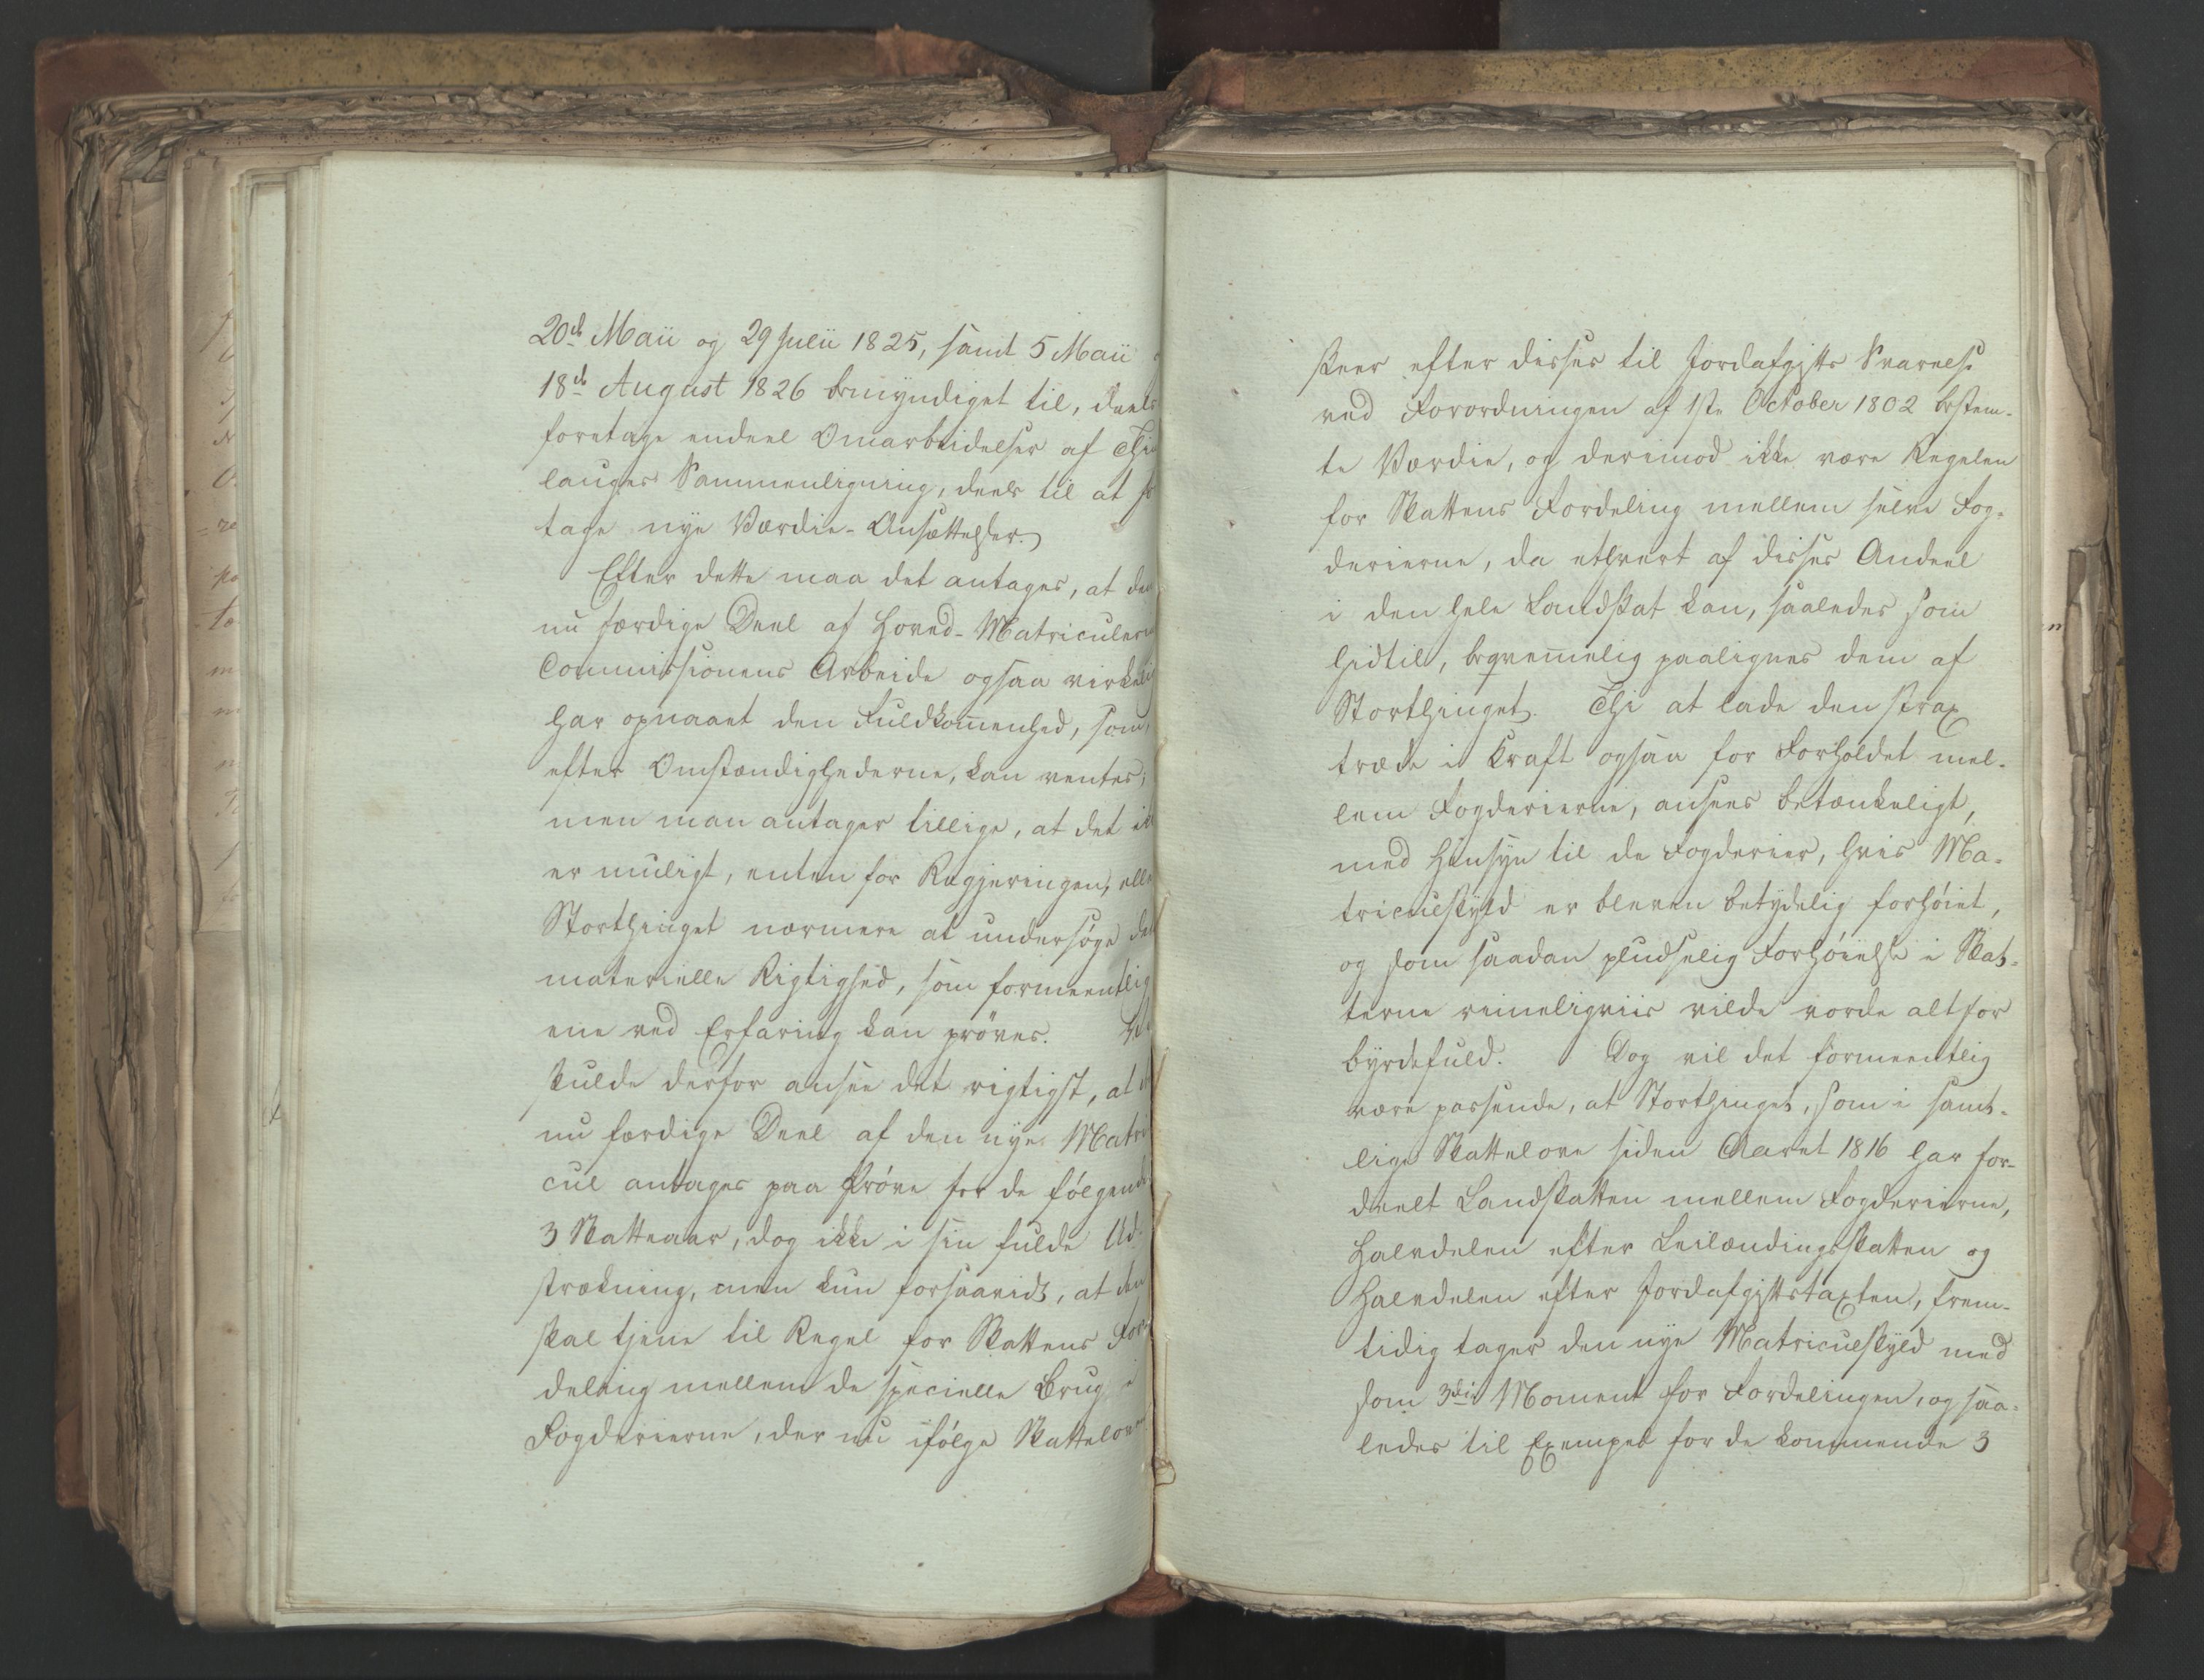 20de Maii og 29 Julii 1825, samt 5 Maii
18de August 1826 bemyndiget til, deels
foretage endeel Omarbeidelser af Thing
lauges Sammenligning, deels til at fo
tage nye Værdie-Ansættelser.
Efter dette maa det antages, at den
nu færdige Deel af Hoved-Matriculerin
Commissionens Arbeide ogsaa virkelig
har opnaaet den Fuldkommenhed, som,
efter Omstændighederne, kan ventes;
men man antager tillige, at det ik
er muligt, enten for Regjeringen, elle
Storthinget nærmere at undersøge den
materielle Rigtighed, som formeentlig
ene ved Erfaring kan prøves. Vi
skulde derfor ansee det rigtigst, at de
nu færdige Deel af den nye Matri
cul antages paa Prøve for de følgende
3 Skatteaar, dog ikke i sin fulde Ud-
strækning, men kun forsaavidt, at den
skal tjene til Regel for Skattens For
deling mellem de specielle Brug i
Fogderierne, der nu ifølge Skatteloven
skeer efter disses til Jordafgifts Svarelse
ved Forordningen af 1ste October 1802 bestem-
te Værdie, og derimod ikke være Regelen
for Skattens Fordeling mellem selve Fog-
derierne, da ethvert af disses Andeel
i den hele Landskat kan, saaledes som
hidtil, beqvemmelig paalignes dem af
Storthinget. Thi at lade den strax
træde i Kraft ogsaa for Forholdet mel-
lem Fogderierne, ansees betænkeligt,
med Hensyn til de Fogderier, hvis Ma-
triculskyld er bleven betydelig forhøiet,
og som saadan pludselig Forhøielse i Skat-
terne rimeligviis vilde vorde altfor
byrdefuld. Dog vil det formeentlig
være passende, at Storthinget, som i samt-
lige Skattelove siden Aaret 1816 har for-
deelt Landskatten mellem Fogderierne,
Halvdelen efter Leilændingsskatten og
Halvdelen efter Jordafgiftstaxten, frem-
tidig tager den nye Matriculskyld med
som 3die Moment for Fordelingen, og saa-
ledes til Exempel for de kommende 3